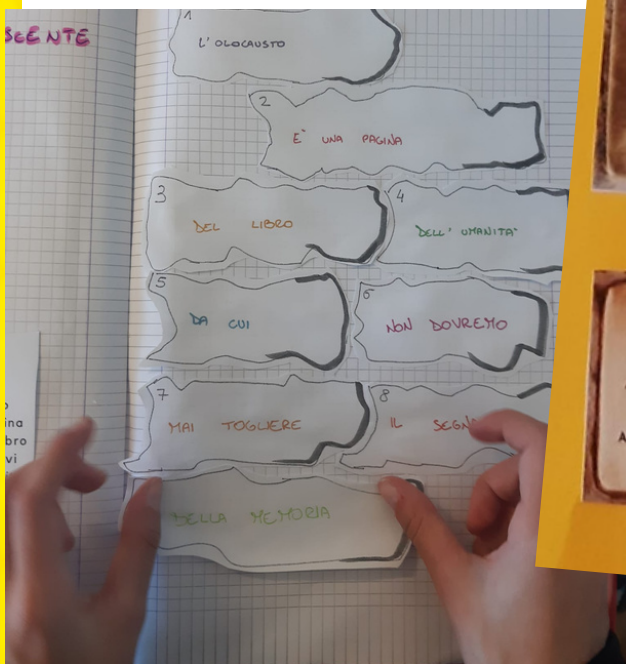 1
L'OLOCAUSTO
2
E' UNA PAGINA
3
DEL LIBRO
4
DELL'UMANITA'
5
DA CUI
6
NON DOVREMO
7
MAI TOGLIERE
8
IL
DELLA MEMORIA